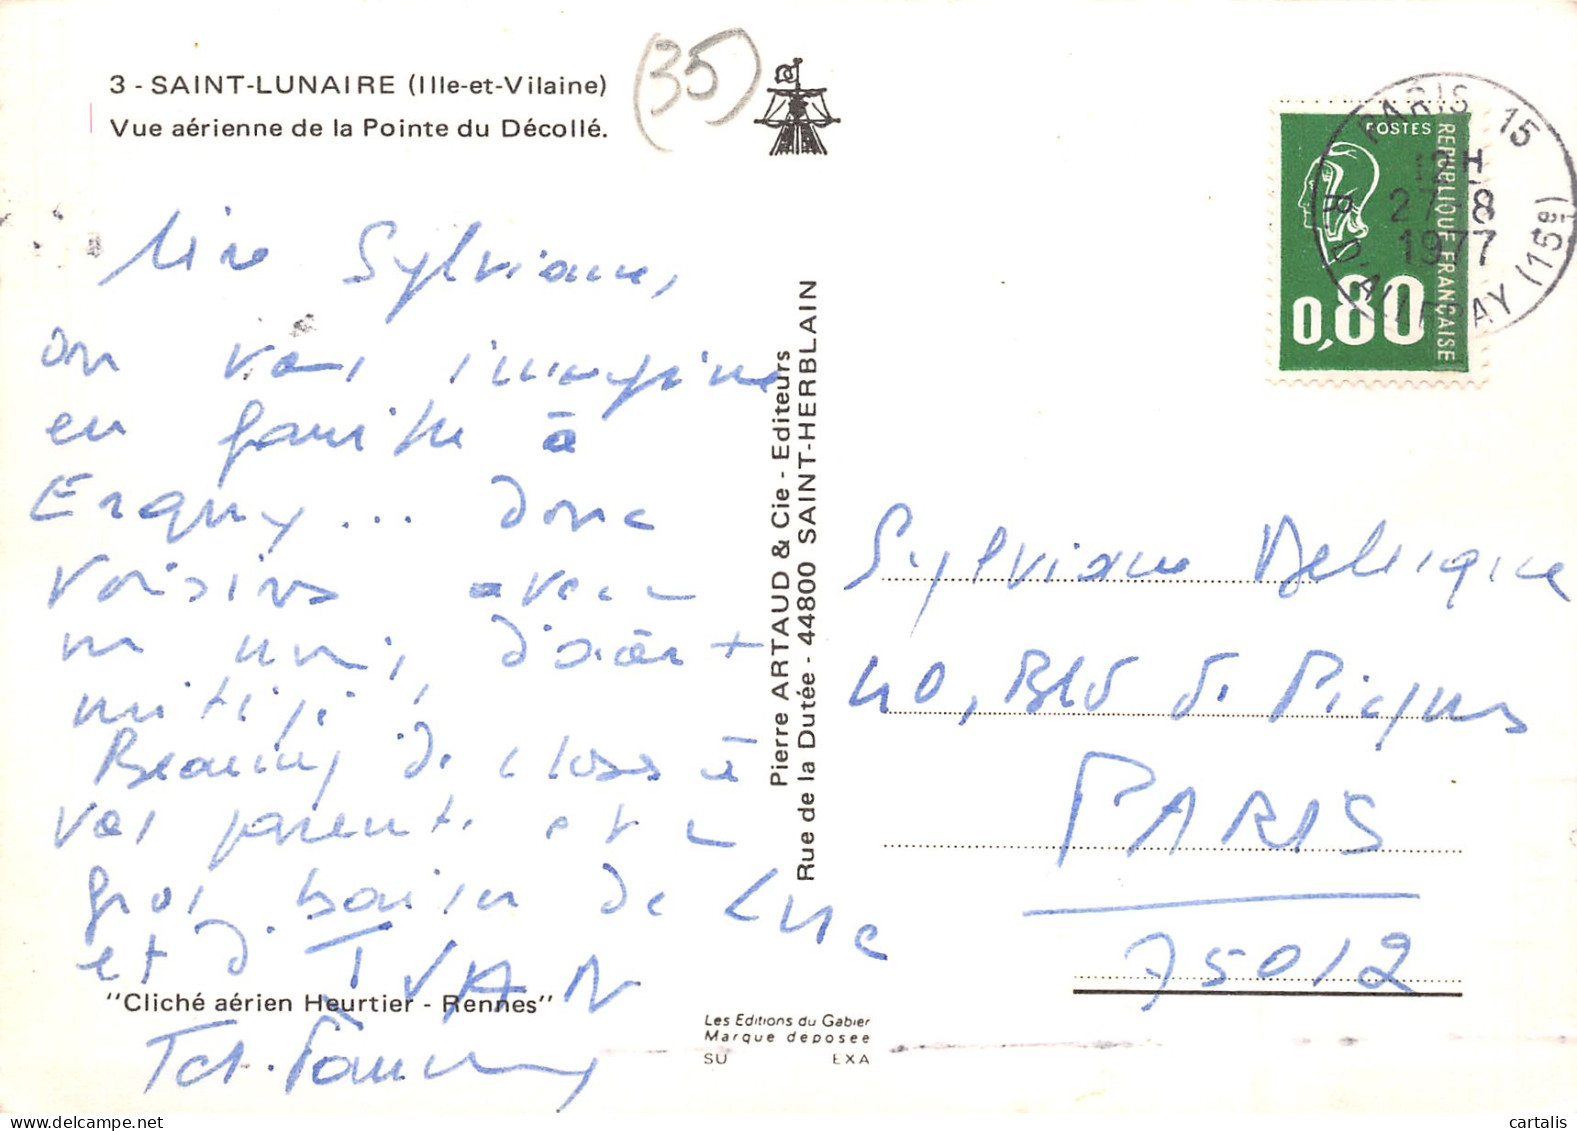 3 - SAINT-LUNAIRE (Ille-et-Vilaine)
Vue aérienne de la Pointe du Décollé.
(35)
POSTES
REPUBLIQUE FRANÇAISE
0,80
PARIS 15
12H
27-8
1977
R. D'ALLERAY (15e)
Sylviane,
on vous imagine
en famille à
Erquy... donc
voisins avec
d'accès +
mitigé,
Beaucoup de choses à
vos parents et un
gros baiser de Luc
et d'IVAN
Pierre ARTAUD & Cie - Editeurs
Rue de la Dutée - 44800 SAINT-HERBLAIN
Sylviane
40, Bld de Picpus
PARIS
75012
"Cliché aérien Heurtier - Rennes"
Les Editions du Gabier
Marque deposee
SU EXA
delcampe.net
cartalis